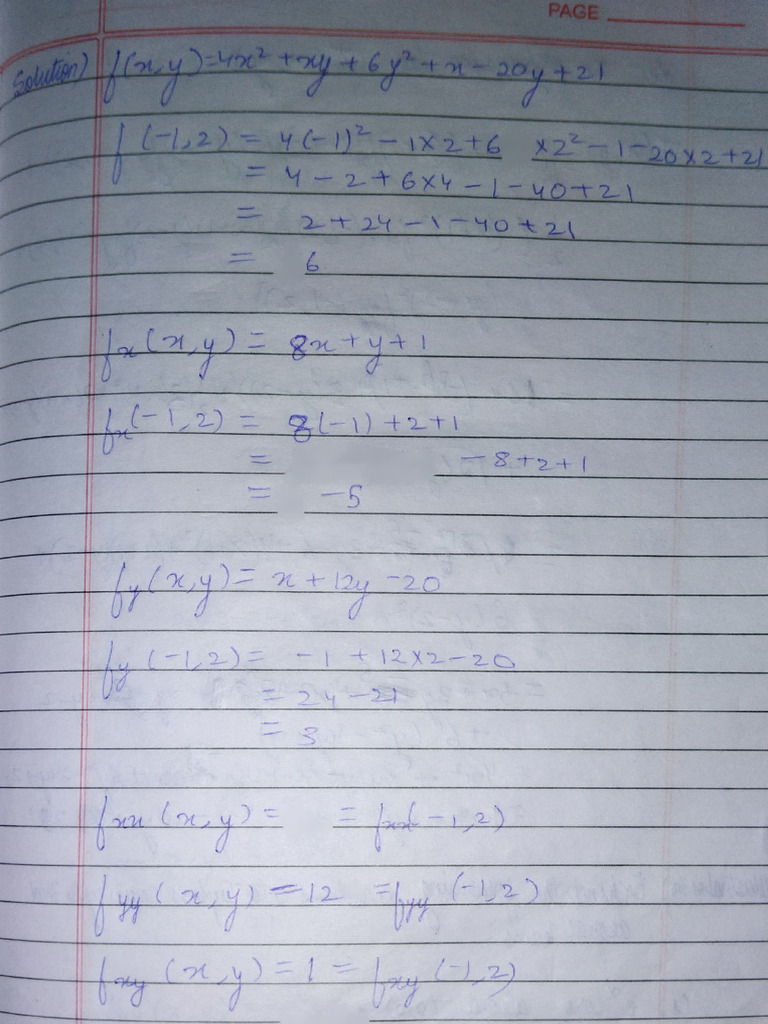 PAGE
Solution) f(x,y)=4x²+xy+6y²+x-20y+21
f(-1,2) = 4(-1)²-1×2+6 ×2²-1-20×2+21
= 4-2+6×4-1-40+21
= 2+24-1-40+21
= 6
fx(x,y) = 8x+y+1
fx(-1,2) = 8(-1)+2+1
= -8+2+1
= -5
fy(x,y) = x+12y-20
fy(-1,2) = -1+12×2-20
= 24-21
= 3
fxx(x,y) = = fxx(-1,2)
fyy(x,y) = 12 = fyy(-1,2)
fxy(x,y) = 1 = fxy(-1,2)